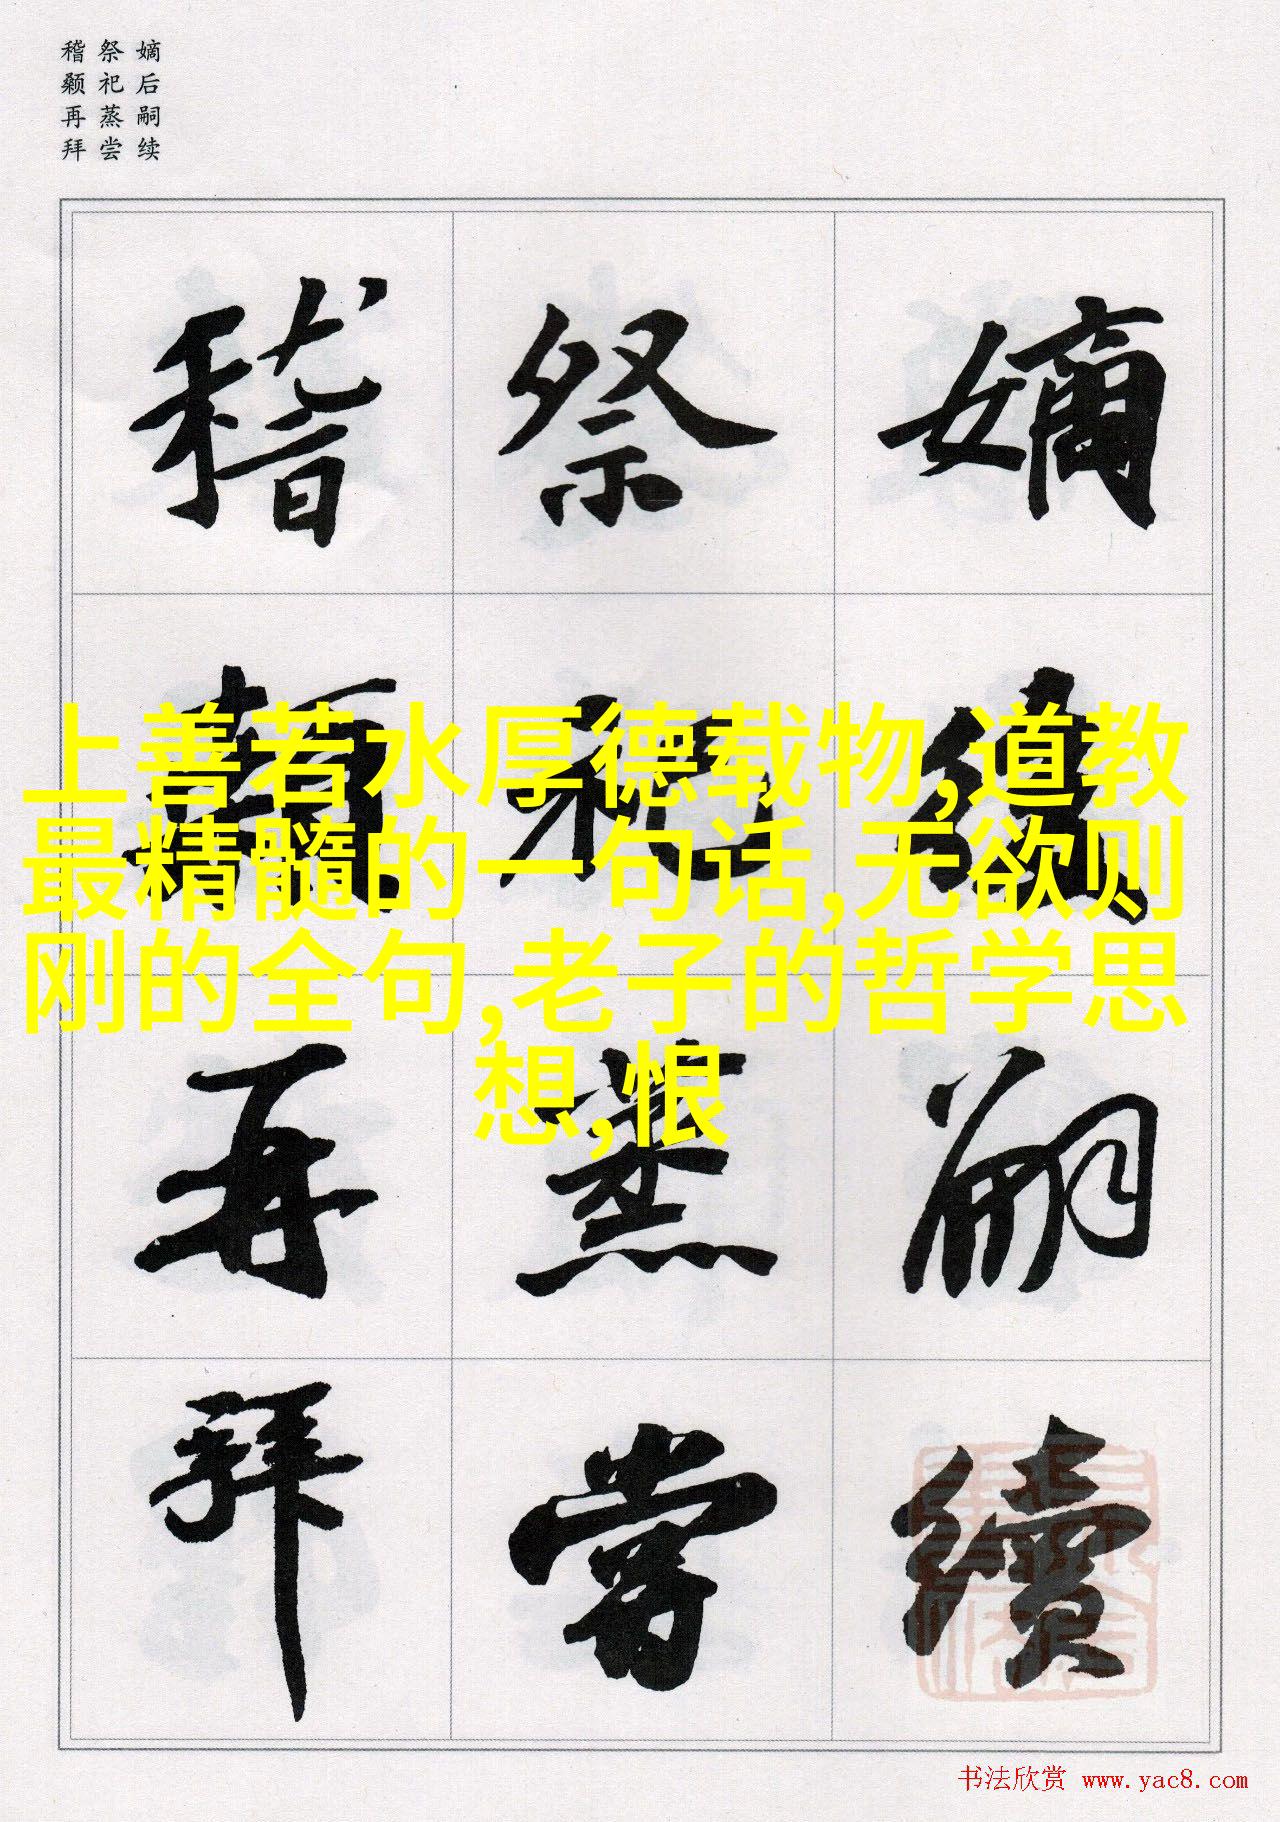 嫡后嗣续
祭祀蒸尝
稽颡再拜
嫡後嗣續
祭祀蒸嘗
稽顙再拜
上善若水厚德载物,道教
最精髓的一句话,无欲则
刚的全句,老子的哲学思
想,恨
书法欣赏 www.yac8.com